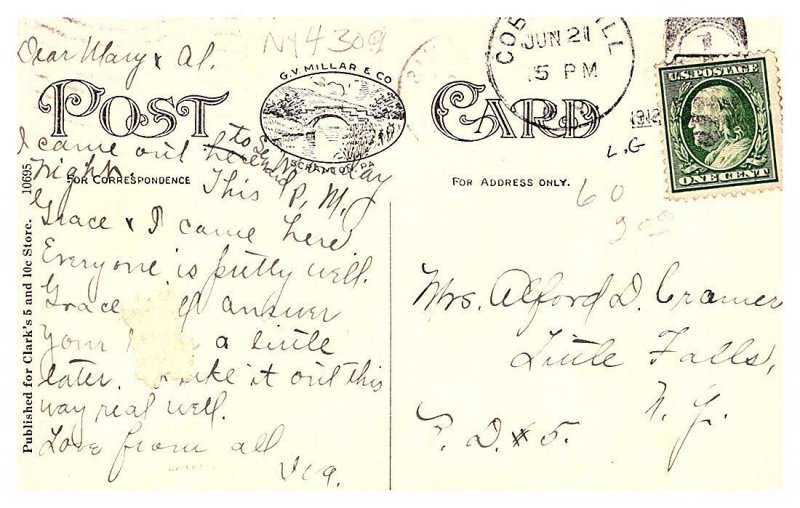 Dear Mary & Al.
NY4309
G. V. MILLAR & CO
SCRANTON, PA
POST CARD
JUN 21
5 PM
1912
U.S. POSTAGE
ONE CENT
L.G
60
FOR CORRESPONDENCE
FOR ADDRESS ONLY.
10695
Published for Clark's 5 and 10c Store.
I came out here to
night. This P. M.
Grace & I came here
Everyone is pretty well.
Grace answer
your a little
later. like it out this
way real well.
Love from all
Mrs. Alford D. Cramer
Little Falls,
N. Y.
R. D. # 5.